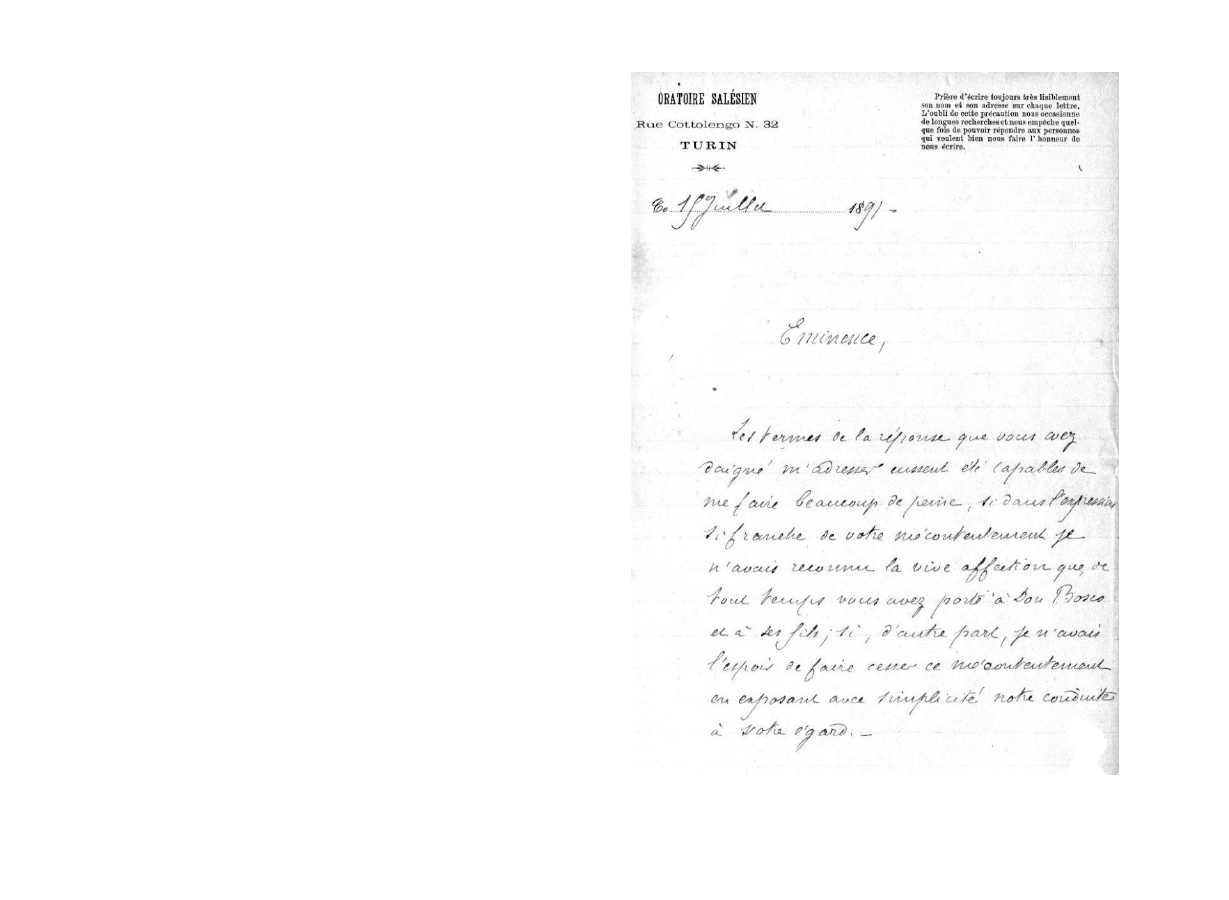 ORATOIRE SALÉSIEN
Rue Cottolengo N. 32
TURIN
Prière d'écrire toujours très lisiblement
son nom et son adresse sur chaque lettre.
L'oubli de cette précaution nous occasionne
de longues recherches et nous empêche quel-
que fois de pouvoir répondre aux personnes
qui veulent bien nous faire l'honneur de
nous écrire.
15 Juillet 1891 -
Eminence,
Les termes de la réponse que vous avez
daigné m'adresser eussent été capables de
me faire beaucoup de peine, si dans l'expression
si franche de votre mécontentement je
n'avais reconnu la vive affection que, de
tout temps vous avez porté à Don Bosco
et à ses fils; si, d'autre part, je n'avais
l'espoir de faire cesser ce mécontentement
en exposant avec simplicité notre conduite
à votre égard. —